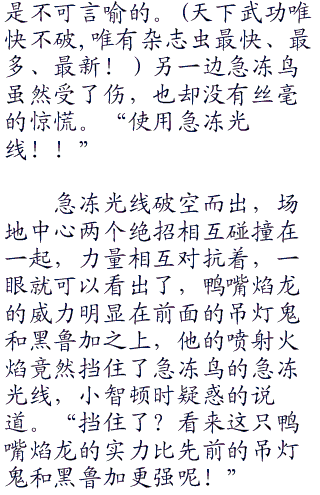 是不可言喻的。(天下武功唯
快不破,唯有杂志虫最快、最
多、最新！)另一边急冻鸟
虽然受了伤，也却没有丝毫
的惊慌。“使用急冻光
线！！”
急冻光线破空而出，场
地中心两个绝招相互碰撞在
一起，力量相互对抗着，一
眼就可以看出了，鸭嘴焰龙
的威力明显在前面的吊灯鬼
和黑鲁加之上，他的喷射火
焰竟然挡住了急冻鸟的急冻
光线，小智顿时疑惑的说
道。“挡住了？看来这只鸭
嘴焰龙的实力比先前的吊灯
鬼和黑鲁加更强呢！”